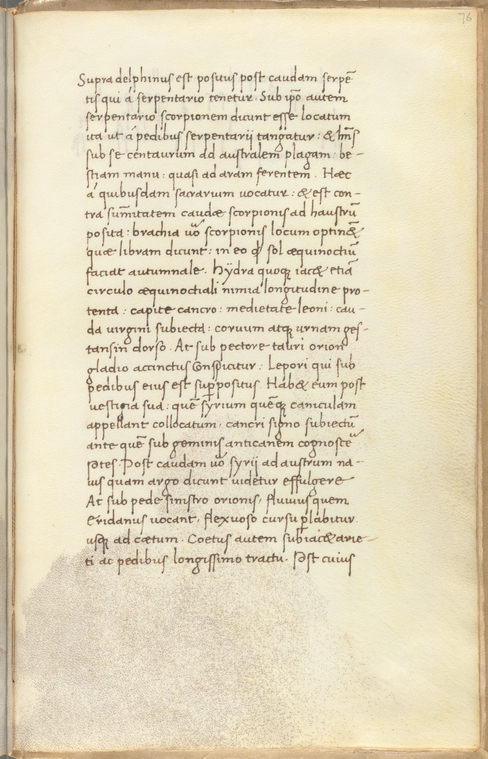 76
Supra delphinus est positus post caudam serpē
tis qui á serpentario tenetur. Sub ipo autem
serpentario scorpionem dicunt esse locatum
ita ut á pedibus serpentarij tangatur: &
sub se centaurum ad australem plagam: be-
stiam manu: quasi ad aram ferentem. Hæc
á quibusdam sacrarium vocatur: & est con-
tra sūmitatem caudæ scorpionis ad haustrū
posita: brachia uō scorpionis locum optin&
quæ libram dicunt: in eo ꝙ sol æquinoctiū
faciat autumnale. Hydra quoqꝫ iac& etiā
circulo æquinoctiali nimia longitudine pro-
tenta: capite cancro: medietate leoni: cau-
da virgini subiecta: coruum atqꝫ urnam ges-
tans in dorso. At sub pectore tauri orion
gladio accinctus conspicitur: Lepori qui sub
pedibus eius est suppositus Hab& eum post
vestigia sua: quē syrium quēqꝫ caniculam
appellant collocatum, cancri signo subiectū
ante quē sub geminis anticanem cognosce
Post caudam uō syrij ad austrum na-
uis quam argo dicunt uidetur effulgere
At sub pede sinistro orionis, fluuius quem
Eridanus uocant, flexuoso cursu plabitur
usqꝫ ad cætum. Coetus autem subiac& arie-
ti ac pedibus longissimo tractu. Post cuius